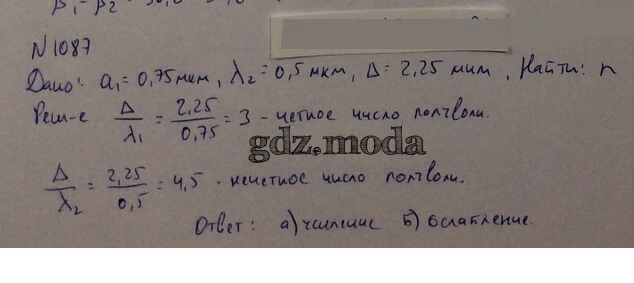 β₁ - β₂ =
N 1087
Дано: a₁ = 0,75 мкм, λ₂ = 0,5 мкм, Δ = 2,25 мкм, Найти: n
Реш-е Δ/λ₁ = 2,25/0,75 = 3 - четное число полуволн.
gdz.moda
Δ/λ₂ = 2,25/0,5 = 4,5 - нечетное число полуволн.
Ответ: а) усиление б) ослабление.